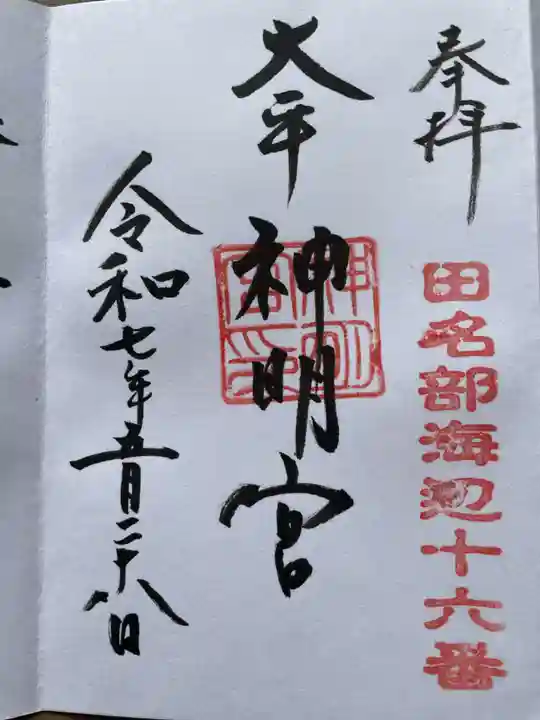 奉拝
田名部海辺十六番
大平神明宮
神明宮印
令和七年五月二十八日